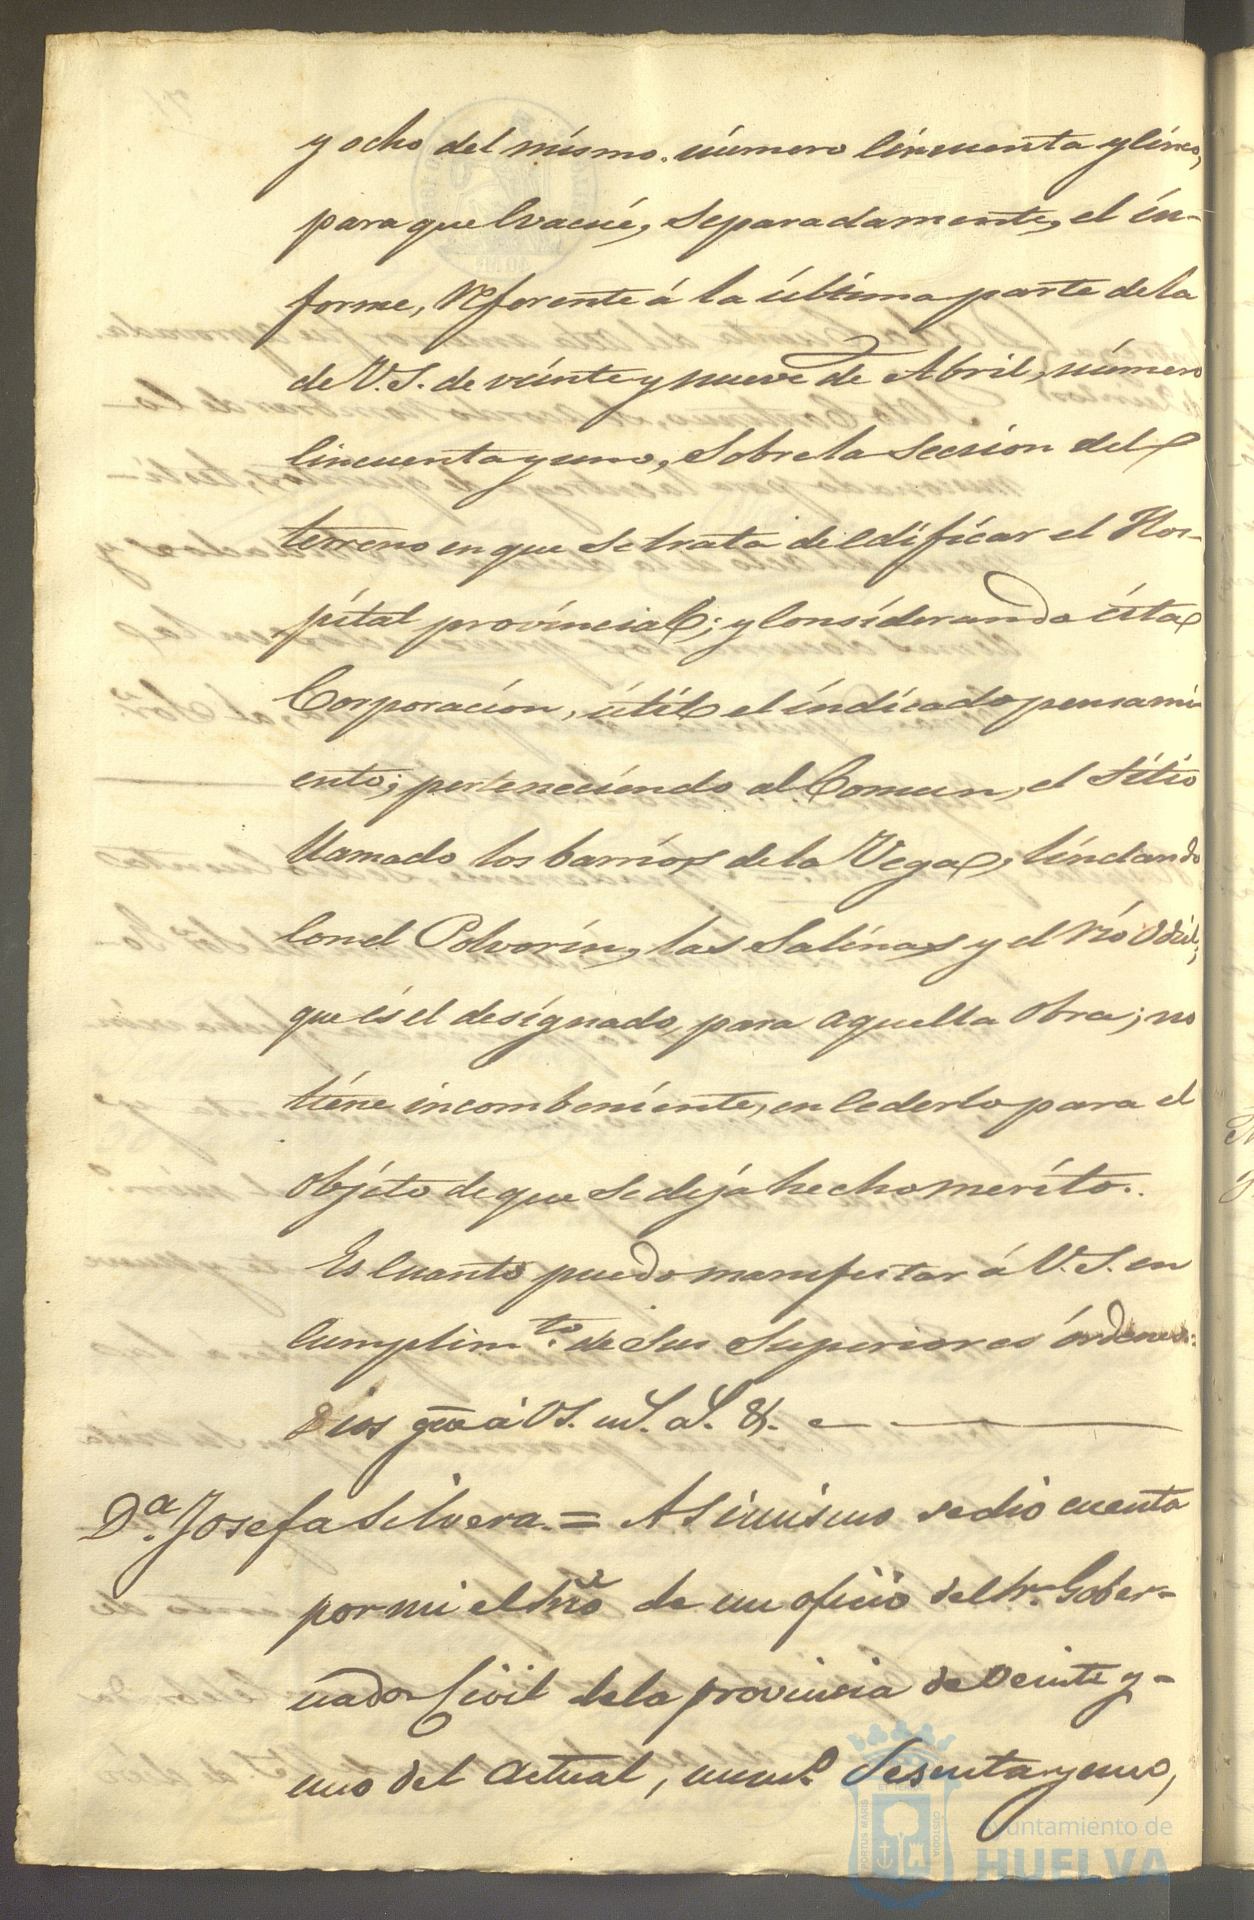 y ocho del mísmo. número Cincuenta y Cinco,
para que Evacúe, Separadamente, el ín-
forme, Referente á la última parte de la
de V.S. de veinte y nueve de Abril, número
Cincuenta y uno, Sobre la Secsion del
terreno en que Se trata de Edificar el Hos-
pital provincial; y Considerando ésta
Corporación, útil el índicado pensami-
ento; perteneciendo al Comun, el Sítio
llamado los barrios de la Vega, líndando
Con el Polvorín, las Salínas y el río Odiel,
que és el designado, para aquella Obra; no
tiéne incombeníente, en Cederlo para el
Objéto de que Se dejá hecho meríto.
Es Cuanto puedo manifestar á V.S. en
Cumplim.to de Sus Superiores órdenes:
Dios gue á V.S. m.s a.s &.
D.a Josefa Silvera. = Asimismo se dio cuenta
por mi el Srio de un oficio del Sr. Gober-
nador Civil de la provincia de Veinte y-
uno del Actual, num.o Sesenta y uno,
PORTUS MARIS
CUSTODIA
Ayuntamiento de
HUELVA